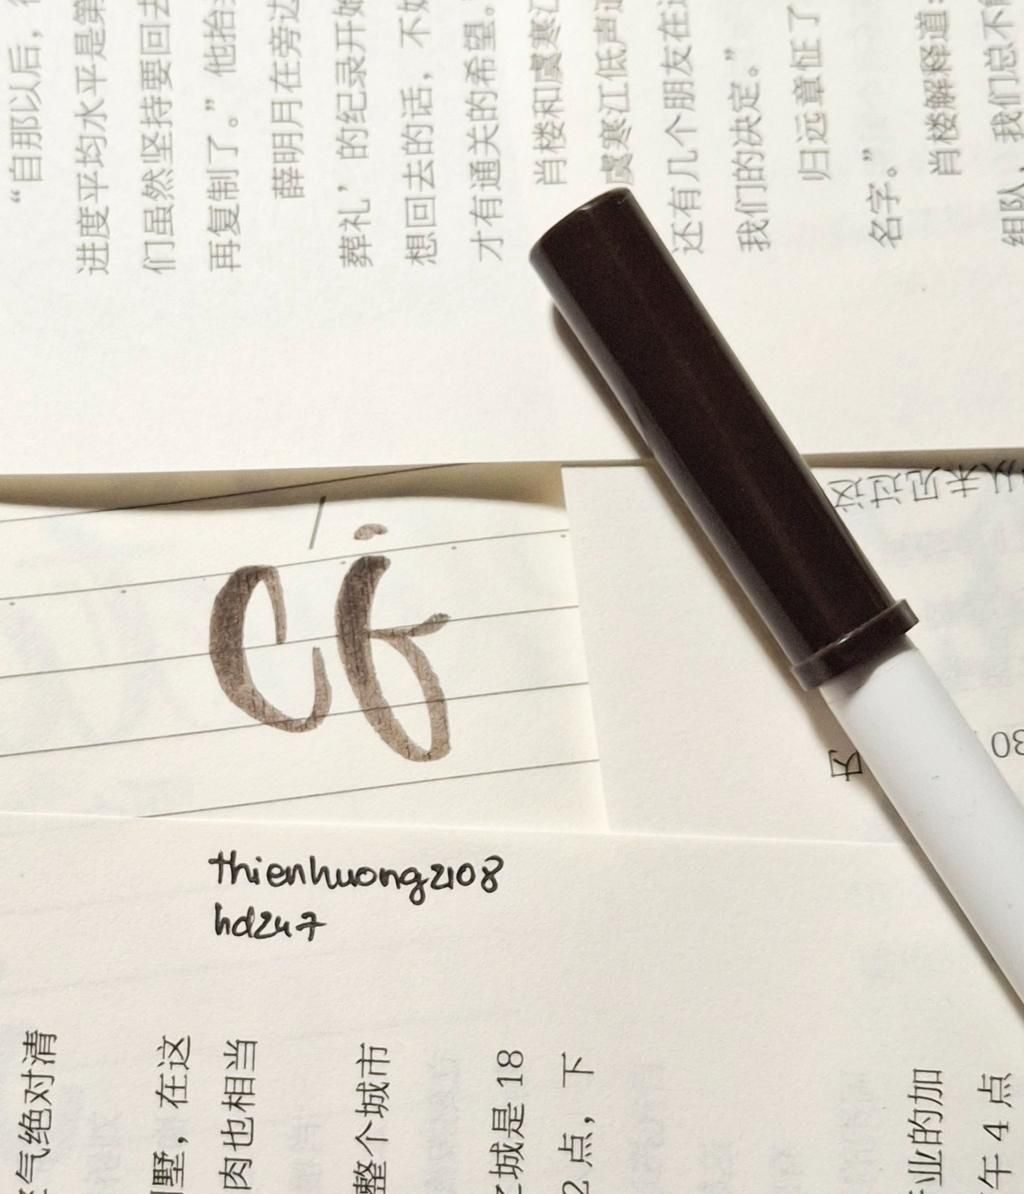 “自那以后，
进度平均水平是第
们虽然坚持要回去
再复制了。”他抬
薛明月在旁边
葬礼’的纪录开始
想回去的话，不如
才有通关的希望。
肖楼和虞寒江
虞寒江低声道
还有几个朋友在这
我们的决定。”
归远章征了
名字。”
肖楼解释道：
组队，我们总不能
thienhuong2108
hd247
气绝对清
墅，在这
肉也相当
整个城市
城是 18
2 点，下
业的加
午 4 点